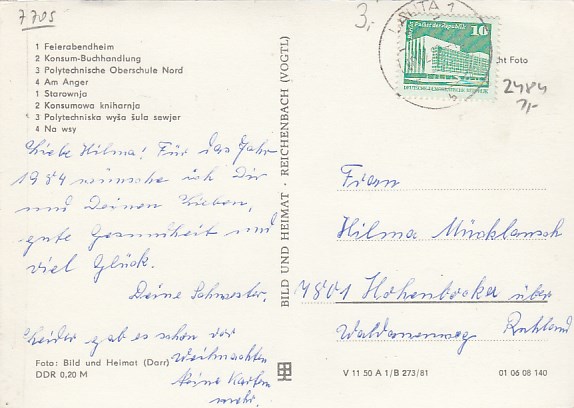 7705
3,-
1 Feierabendheim
2 Konsum-Buchhandlung
3 Polytechnische Oberschule Nord
4 Am Anger
1 Starownja
2 Konsumowa kniharnja
3 Polytechniska wyša šula sewjer
4 Na wsy
Liebe Hilma! Für das Jahr
1984 wünsche ich Dir
und Deinen Lieben,
gute Gesundheit und
viel Glück.
Deine Schwester.
Leider gab es schon vor
Weihnachten
keine Karten
mehr.
Foto: Bild und Heimat (Darr)
DDR 0,20 M
BILD UND HEIMAT · REICHENBACH (VOGTL)
LAUTA 1
Berlin Palast der Republik
10
DEUTSCHE DEMOKRATISCHE REPUBLIK
ht Foto
2484
Frau
Hilma
7801 Hohenbocka über
Ruhland
V 11 50 A 1/B 273/81
01 06 08 140